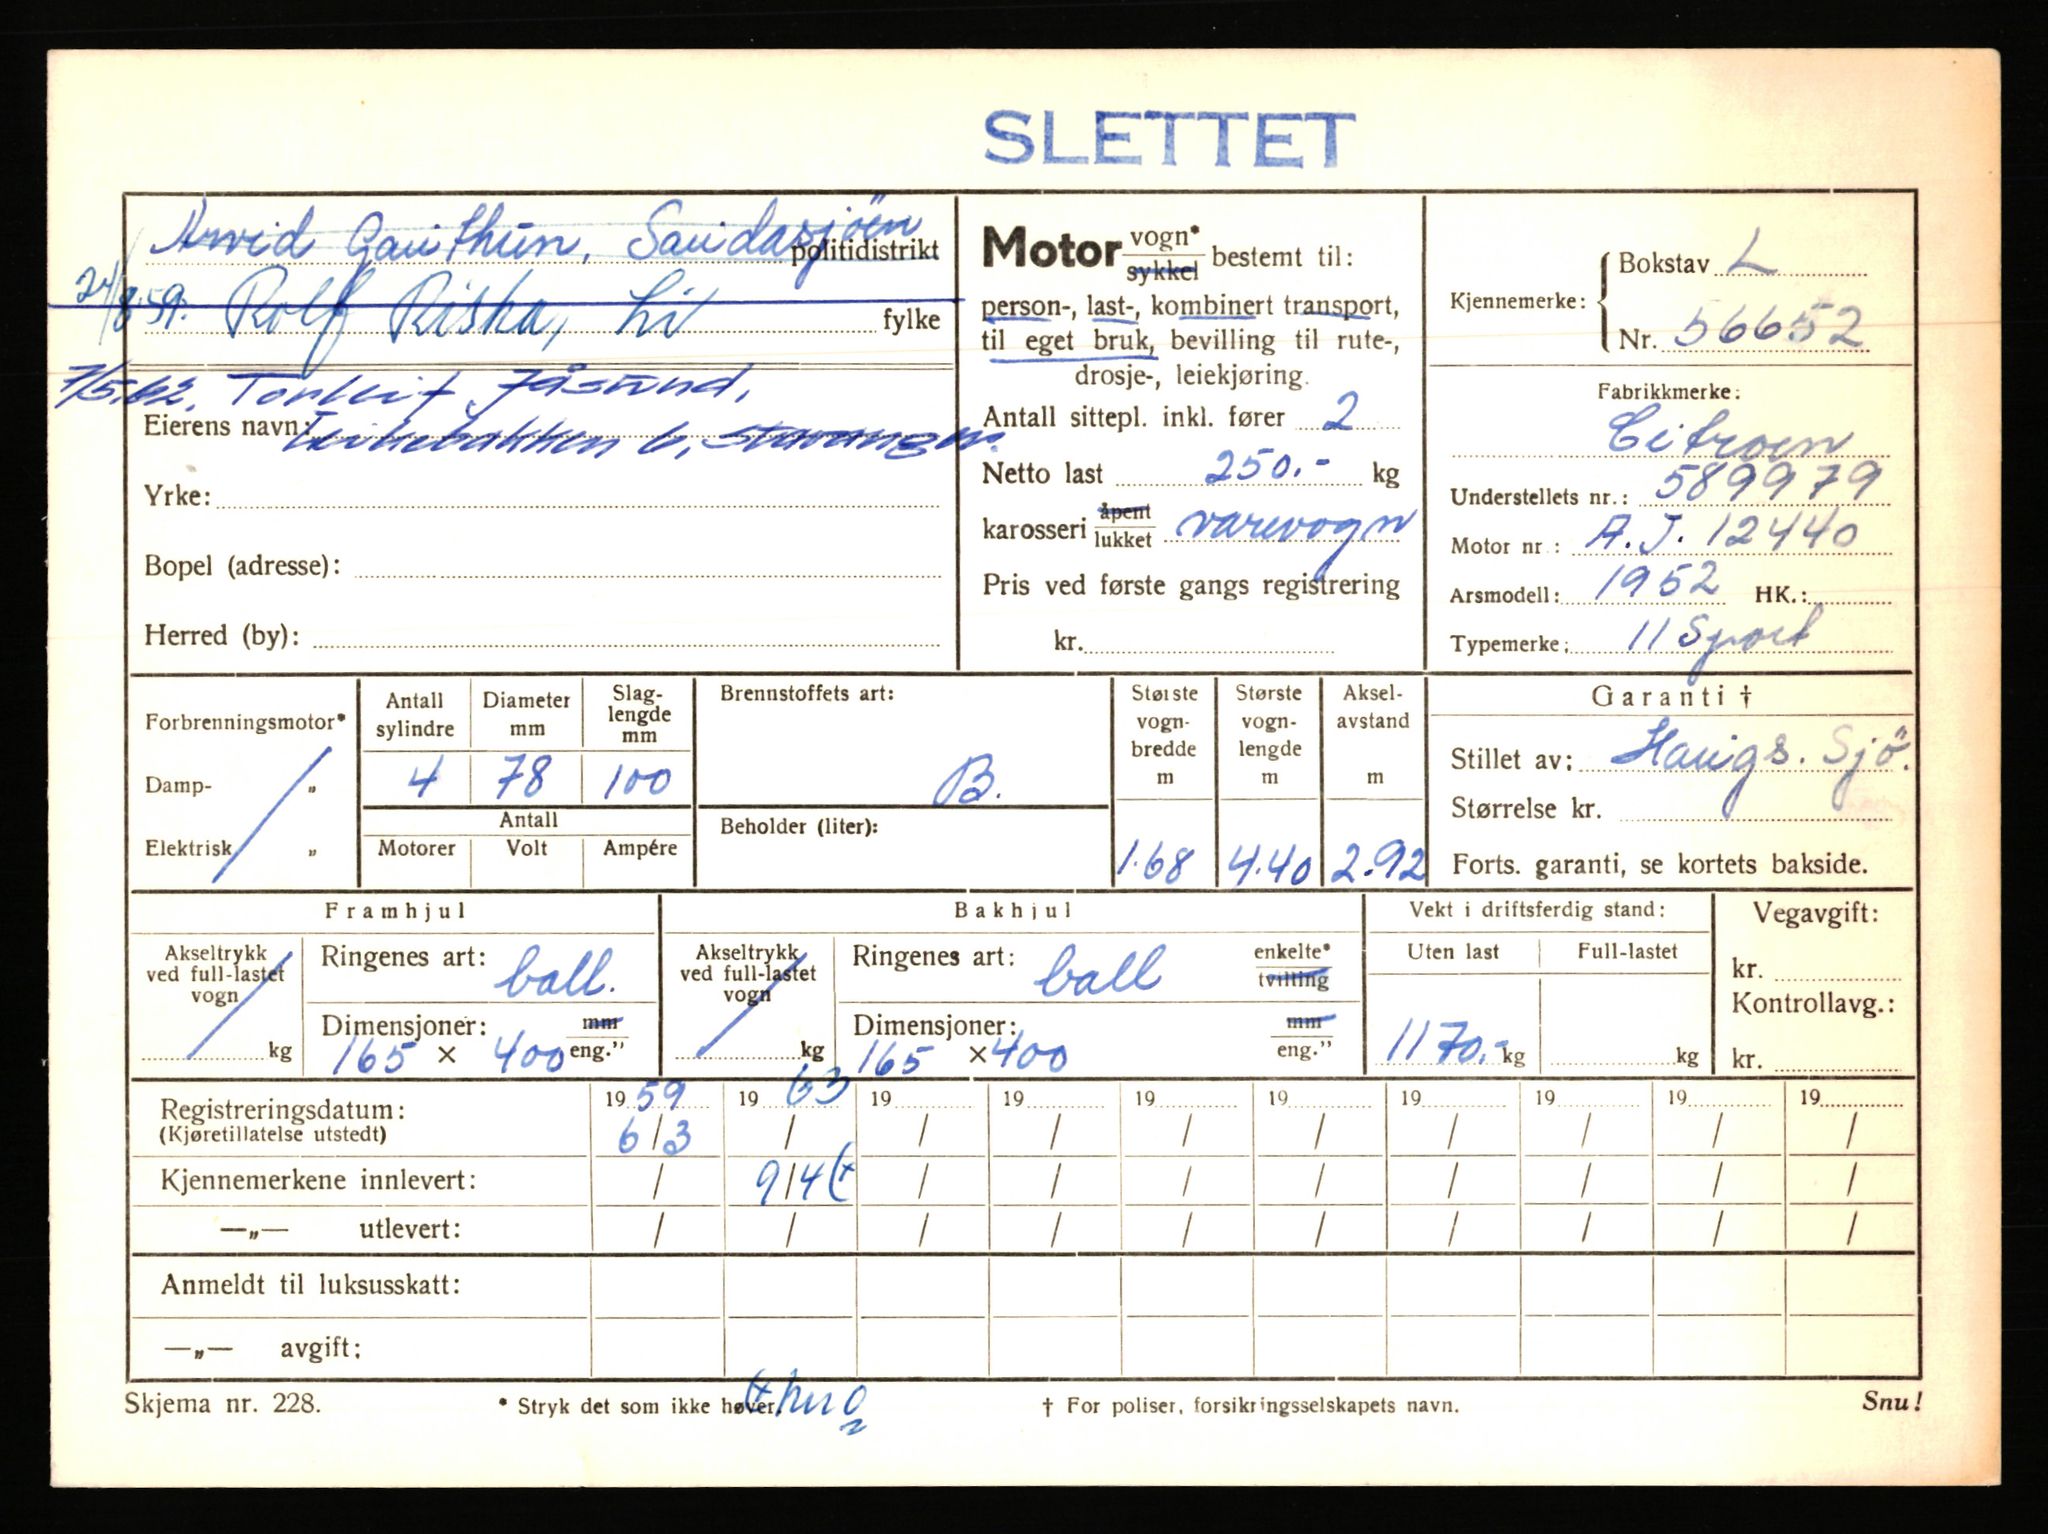 SLETTET
Arvid Gauthun, Saudasjøen politidistrikt
24/8.59. Rolf Riska, Li fylke
7/5.62. Torleif Jåsund,
Eierens navn: 6, Stavanger.
Yrke:
Bopel (adresse):
Herred (by):
Motor vogn* sykkel bestemt til:
person-, last-, kombinert transport,
til eget bruk, bevilling til rute-,
drosje-, leiekjøring.
Antall sittepl. inkl. fører 2
Netto last 250.- kg
karosseri åpent lukket varevogn
Pris ved første gangs registrering
kr.
Kjennemerke: Bokstav L
Nr. 56652
Fabrikkmerke:
Citroen
Understellets nr.: 589979
Motor nr: A.J. 12440
Arsmodell: 1952 HK.:
Typemerke: 11 Sport
Forbrenningsmotor*
Damp- „
Elektrisk „
Antall sylindre
Diameter mm
Slag-lengde mm
4 78 100
Antall
Motorer Volt Ampére
Brennstoffets art:
B.
Beholder (liter):
Største vogn-bredde m
1.68
Største vogn-lengde m
4.40
Aksel-avstand m
2.92
Garanti †
Stillet av: Haugs. Sjø.
Størrelse kr.
Forts. garanti, se kortets bakside.
Framhjul
Akseltrykk ved full-lastet vogn
kg
Ringenes art: ball.
Dimensjoner: mm
165 × 400 eng."
Bakhjul
Akseltrykk ved full-lastet vogn
kg
Ringenes art: ball enkelte* tvilling
Dimensjoner: mm
165 × 400 eng."
Vekt i driftsferdig stand:
Uten last Full-lastet
1170.- kg kg
Vegavgift:
kr.
Kontrollavg.:
kr.
Registreringsdatum: 19 59 19 63 19 19 19 19 19 19 19 19
(Kjøretillatelse utstedt) 6/3 / / / / / / / / /
Kjennemerkene innlevert: / 9/4 (x / / / / / / / /
—„— utlevert: / / / / / / / / / /
Anmeldt til luksusskatt:
—„— avgift:
Skjema nr. 228.
* Stryk det som ikke høver.
† For poliser, forsikringsselskapets navn.
Snu!